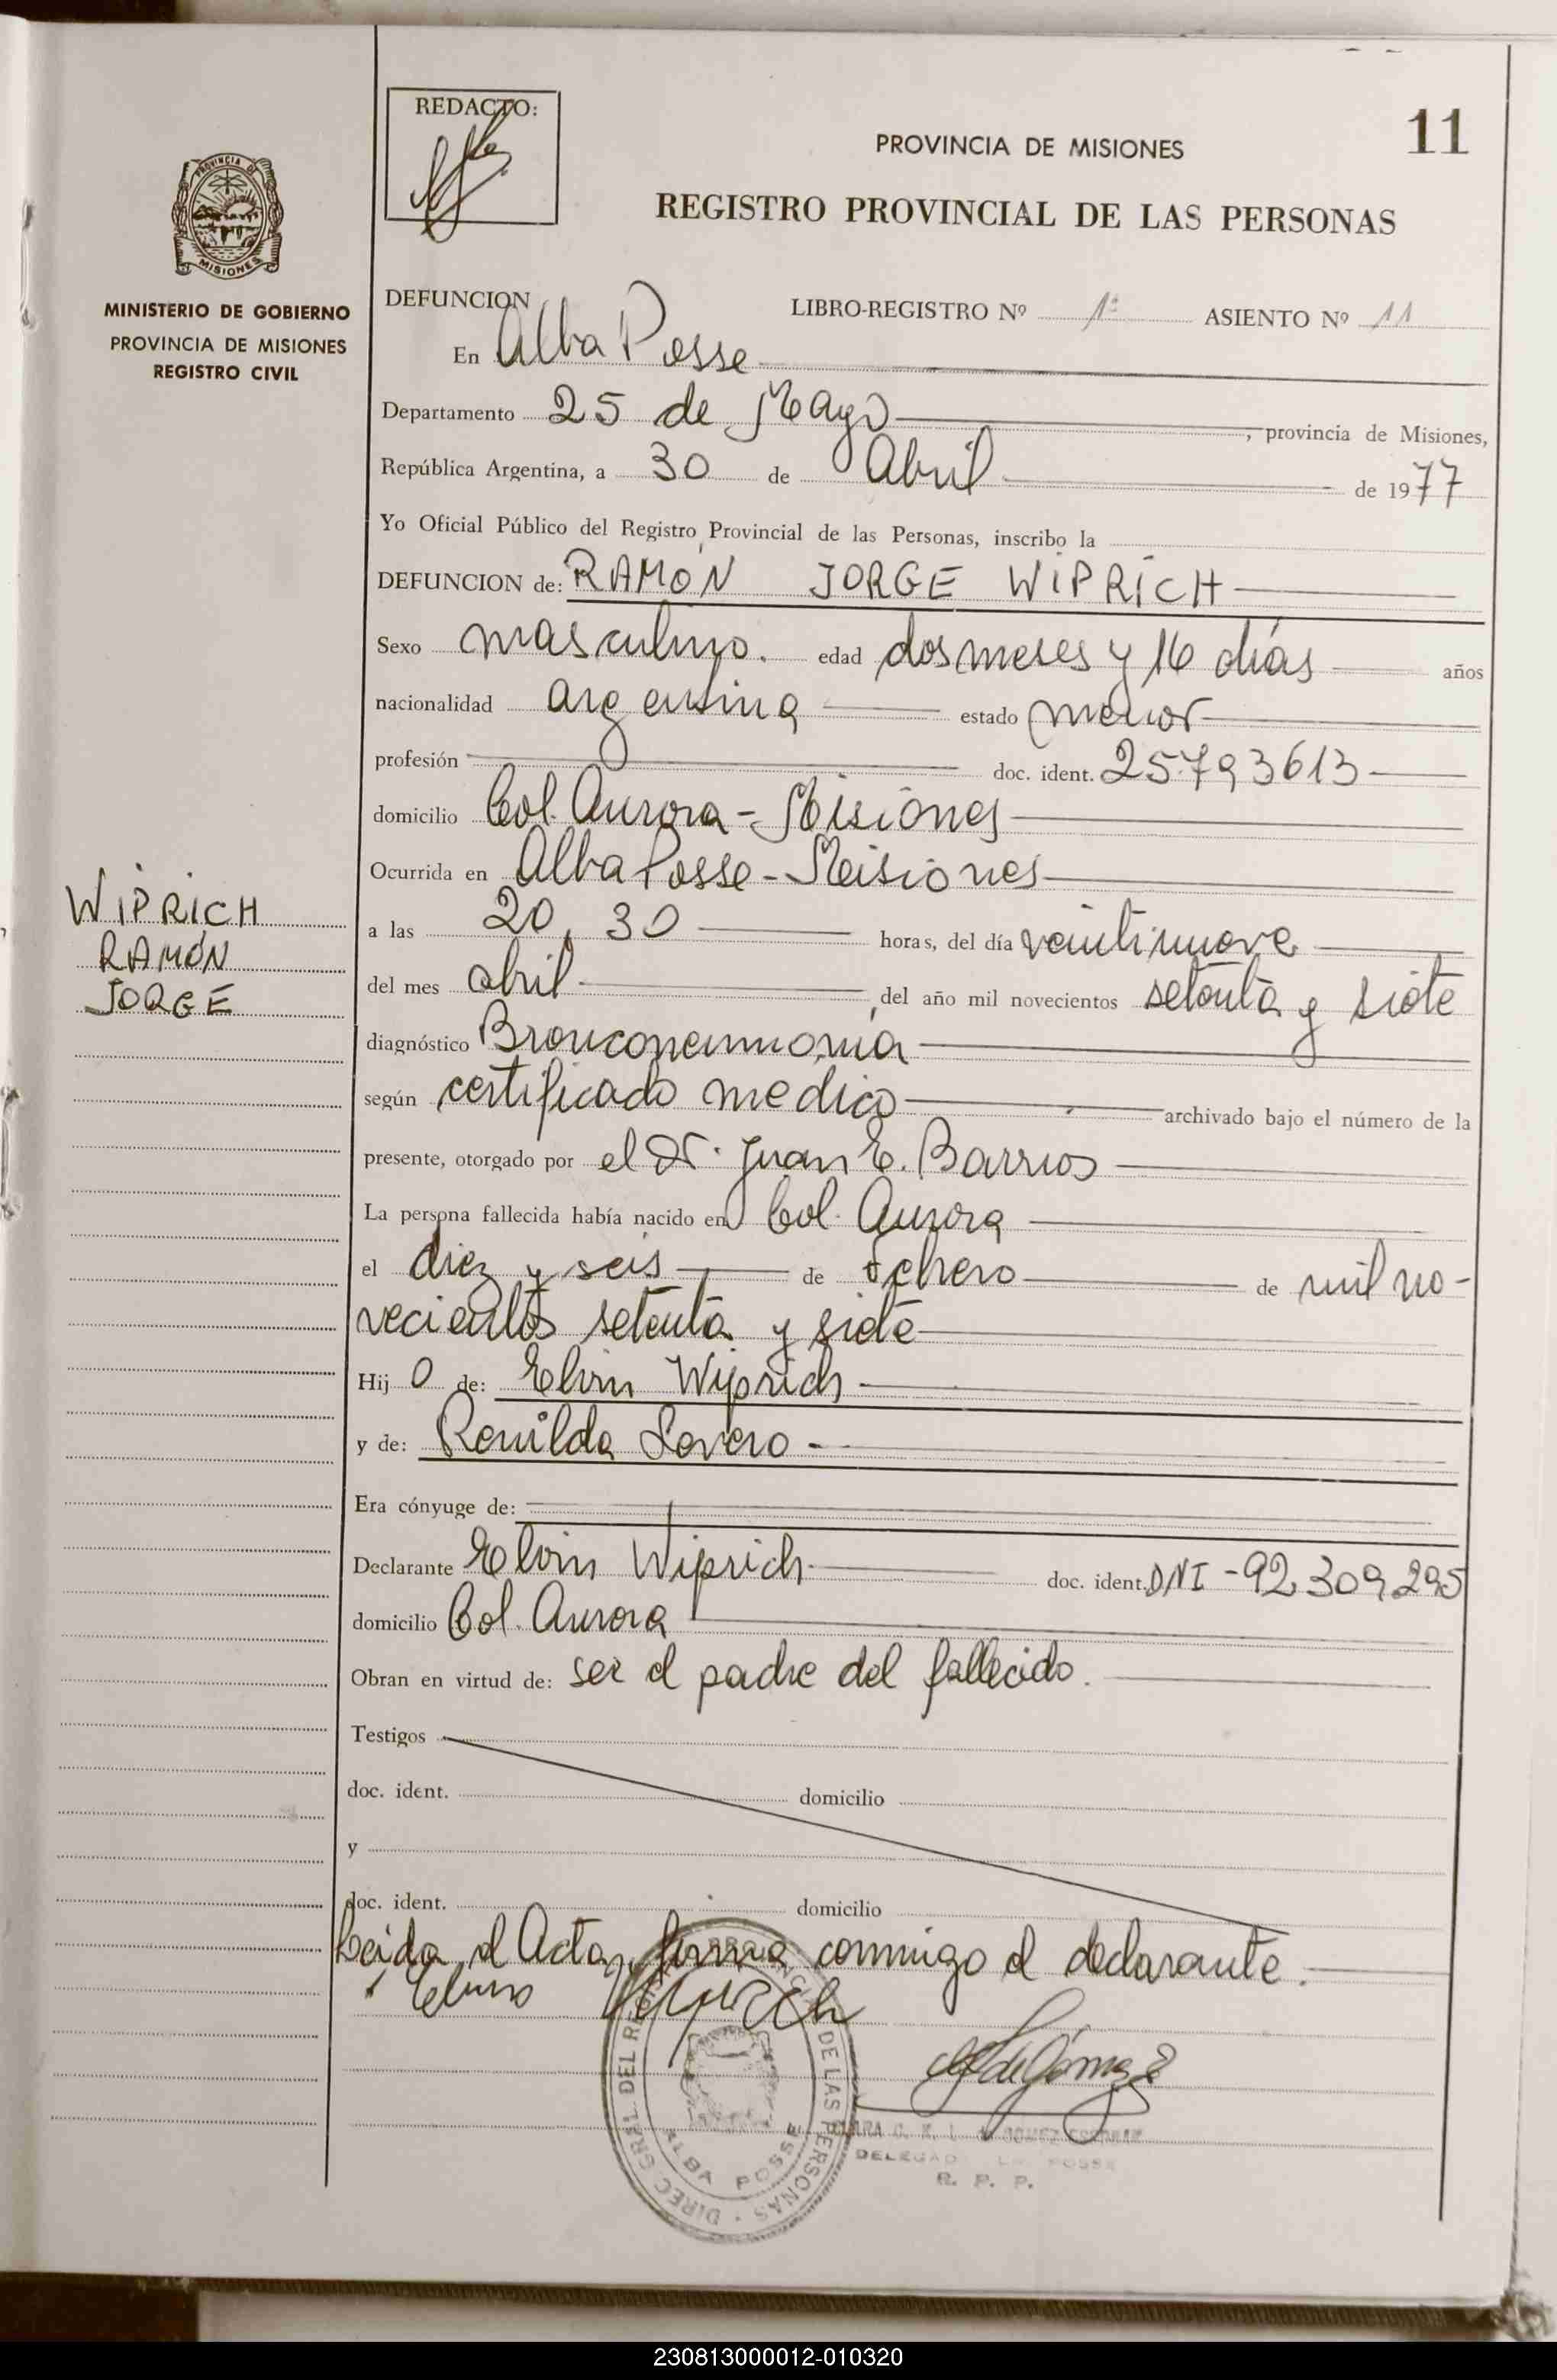 REDACTO:
11
PROVINCIA DE MISIONES
REGISTRO PROVINCIAL DE LAS PERSONAS
PROVINCIA DE
MISIONES
MINISTERIO DE GOBIERNO
PROVINCIA DE MISIONES
REGISTRO CIVIL
DEFUNCION LIBRO-REGISTRO Nº 1º ASIENTO Nº 11
En Alba Posse
Departamento 25 de Mayo, provincia de Misiones,
República Argentina, a 30 de Abril de 1977
Yo Oficial Público del Registro Provincial de las Personas, inscribo la
DEFUNCION de: RAMÓN JORGE WIPRICH
Sexo masculino. edad dos meses y 16 días años
nacionalidad argentina estado menor
profesión doc. ident. 25.793613
domicilio Col. Aurora - Misiones
Ocurrida en Alba Posse - Misiones
WIPRICH
RAMÓN
JORGE
a las 20,30 horas, del día veintinueve
del mes abril del año mil novecientos setenta y siete
diagnóstico Bronconeumonia
según certificado medico archivado bajo el número de la
presente, otorgado por el Dr. Juan E. Barrios
La persona fallecida había nacido en Col. Aurora
el diez y seis de febrero de mil no-
vecientos setenta y siete
Hijo de: Elvin Wiprich
y de: Renilda Severo -
Era cónyuge de:
Declarante Elvin Wiprich doc. ident. DNI - 92.309.295
domicilio Col. Aurora
Obran en virtud de: ser el padre del fallecido.
Testigos
doc. ident. domicilio
y
doc. ident. domicilio
Leida el Acta, firma conmigo el declarante.
Elvino Wiprich
DIREC. GRAL. DEL REG. PROVINCIAL DE LAS PERSONAS
ALBA POSSE
de Gómez
R. P. P.
230813000012-010320